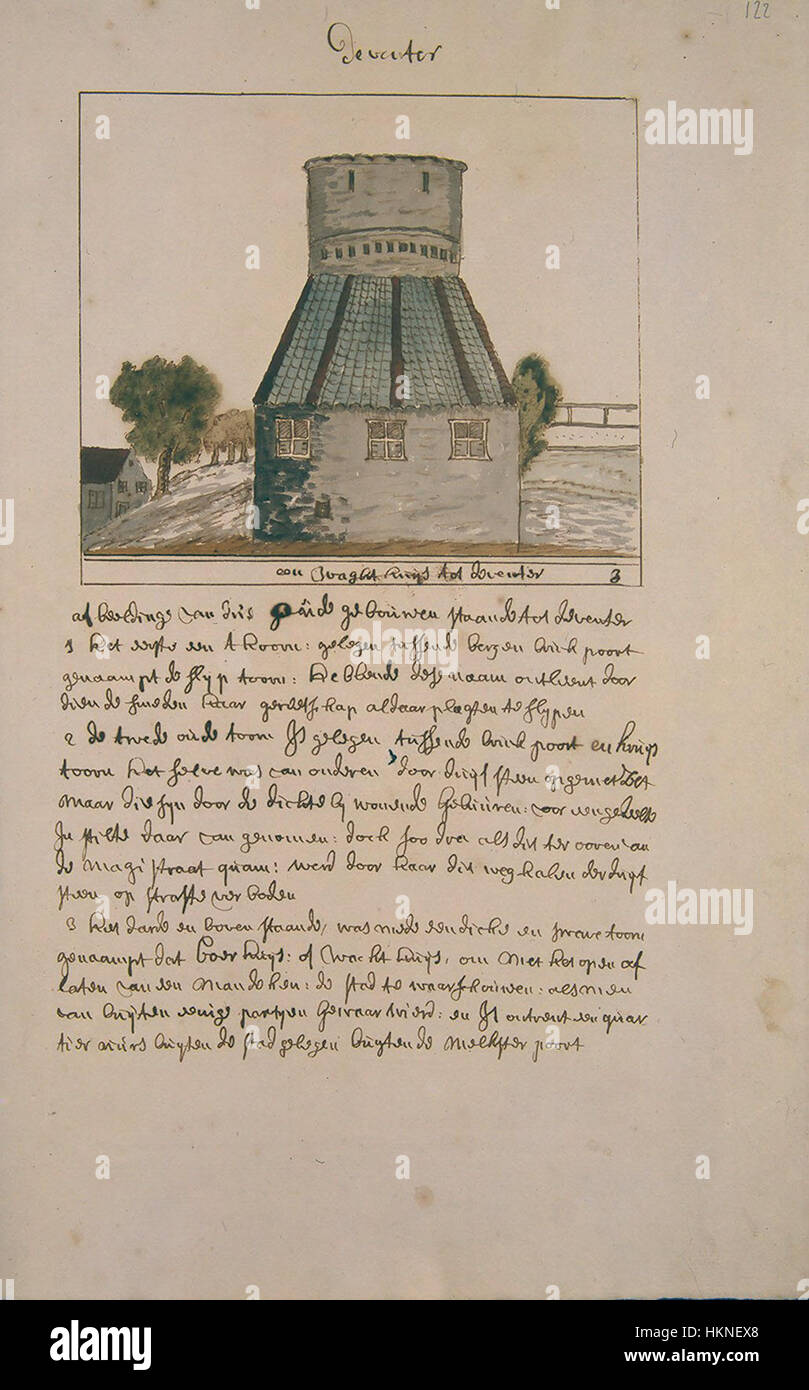 122
Deventer
een Waght huijs tot deventer 3
af beeldinge van drie oúde geboúwen staande tot deventer
1 het eerste een thoorn: gelegen tussende bergen brink poort
genaampt de slijp toorn: hebbende dese naam ontleent door
dien de smeden haar geretschap aldaar plagten te slypen
2 de twede oúde toorn Is gelegen tussende brink poort en húijs
toorn het selve was van onderen door duijf steen opgemetselt
maar die sijn door de dichte bij wonende gebúúren: voor een gedeelte
In stilte daar van genomen: doch soo dra als dit ter ooren van
de magistraat quam: werd door haar dit weg halen der duijf
steen op straffe verboden
3 het darde en boven staande, was mede een dicke en sware toorn
genaampt dat boer huijs: of wacht húijs, om met het open af
laten van een mandeken: de stad te waarschouwen: als men
van buijten eenige partijen gewaar wierd: en Is ontrent een quar
tier uúrs buijten de stad gelegen buijten de melkster poort
alamy
Image ID: HKNEX8
www.alamy.com